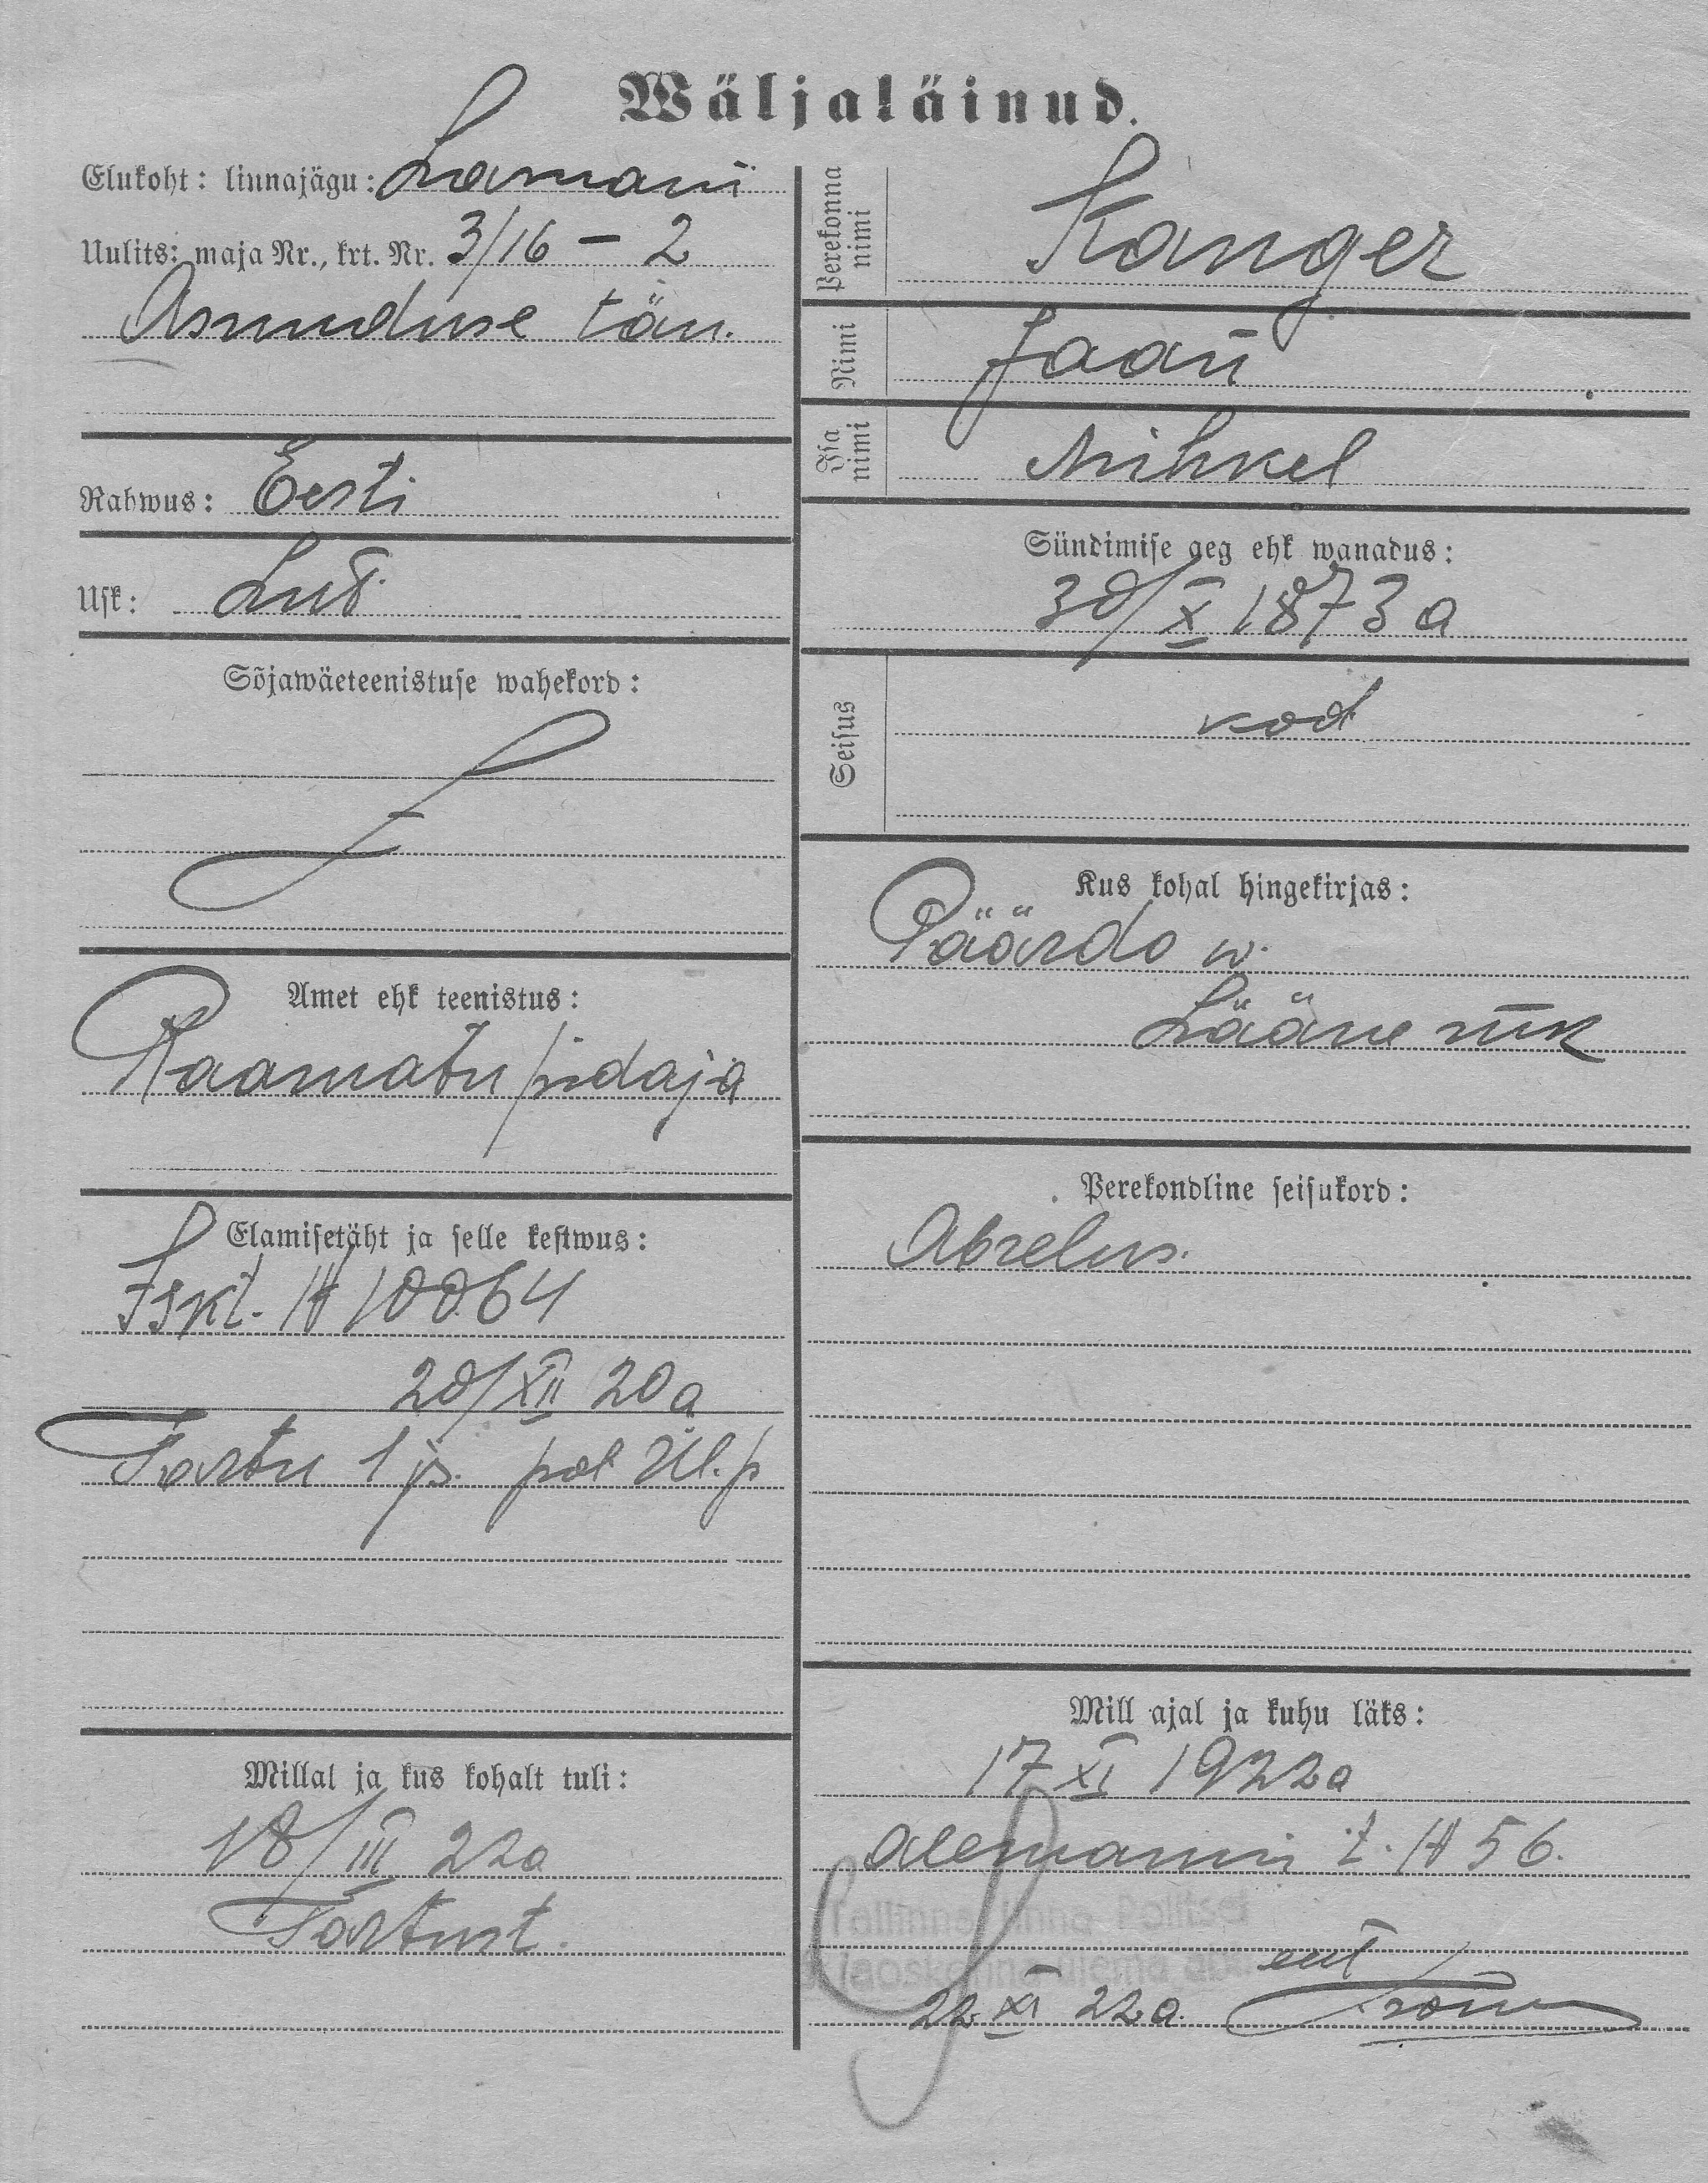 Wäljaläinud.
Elukoht: linnajägu: Lasnami
Uulits: maja Nr., krt. Nr. 3/16 – 2
Asunduse tän.
Rahwus: Eesti
Usk: Lut.
Sõjawäeteenistuse wahekord:
Amet ehk teenistus:
Raamatu pidaja
Elamisetäht ja selle kestwus:
Iskt. № 10064
20/XII 20 a
Tartu 1 js. pol. Ül. p
Millal ja kus kohalt tuli:
18/III 22 a
Tartust.
Perekonna nimi Kanger
Nimi Jaan
Isa nimi Mihkel
Sündimise aeg ehk wanadus:
30/X 1873 a
Seisus kod.
Kus kohal hingekirjas:
Päärdo w.
Lääne mk
Perekondline seisukord:
Abielus.
Mill ajal ja kuhu läks:
17 XI 1922 a
t. № 56.
Tallinna linna Politsei
jaoskonna ülema abi
22 XI 22 a.